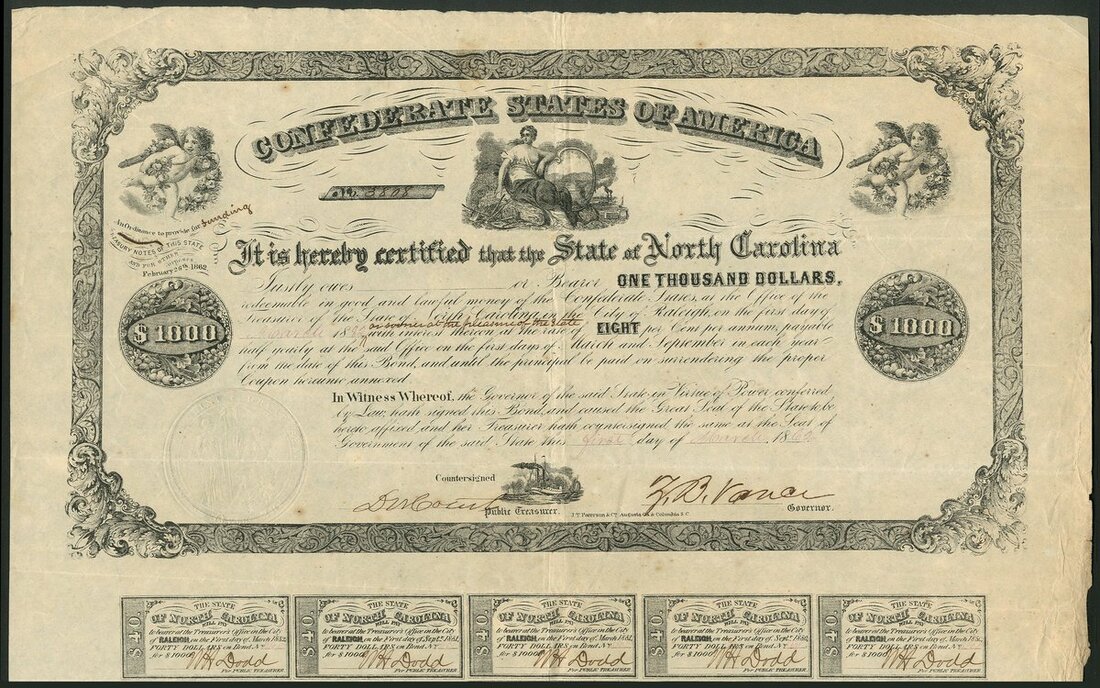 CONFEDERATE STATES OF AMERICA
No. 3808
An Ordinance to provide for funding
TREASURY NOTES OF THIS STATE
AND FOR OTHER
purposes
February 26th, 1862.
It is hereby certified that the State of North Carolina
Justly owes or Bearer ONE THOUSAND DOLLARS,
redeemable in good and lawful money of the Confederate States, at the Office of the
Treasurer of the State of North Carolina in the City of Raleigh, on the first day of
or sooner at the pleasure of the State
18 with interest thereon at the rate of EIGHT per Cent per annum, payable
half yearly at the said Office on the first days of March and September in each year
from the date of this Bond, and until the principal be paid on surrendering the proper
Coupon hereunto annexed.
$1000
$1000
In Witness Whereof, the Governor of the said State in Virtue of Power conferred
by Law, hath signed this Bond, and caused the Great Seal of the State to be
hereto affixed and her Treasurer hath countersigned the same at the Seat of
Government of the said State this first day of March 186
Countersigned
Public Treasurer.
Z. B. Vance
Governor.
J. T. Paterson & Co. Augusta Ga. & Columbia S.C.
$40.
THE STATE
OF NORTH CAROLINA
WILL PAY
to bearer at the Treasurer's Office in the City
of RALEIGH, on the First day of March, 1882.
FORTY DOLLARS on Bond No.
for $1000
W H Dodd
For PUBLIC TREASURER
$40.
THE STATE
OF NORTH CAROLINA
WILL PAY
to bearer at the Treasurer's Office in the City
of RALEIGH, on the First day of
FORTY DOLLARS on Bond No.
for $1000
W H Dodd
For PUBLIC TREASURER
$40.
THE STATE
OF NORTH CAROLINA
WILL PAY
to bearer at the Treasurer's Office in the City
of RALEIGH, on the First day of March,
FORTY DOLLARS on Bond No.
for $1000
W H Dodd
For PUBLIC TREASURER
$40.
THE STATE
OF NORTH CAROLINA
WILL PAY
to bearer at the Treasurer's Office in the City
of RALEIGH, on the First day of Sept.
FORTY DOLLARS on Bond No.
for $1000
W H Dodd
For PUBLIC TREASURER
$40.
THE STATE
OF NORTH CAROLINA
WILL PAY
to bearer at the Treasurer's Office in the City
of RALEIGH, on the First day of March,
FORTY DOLLARS on Bond No.
for $1000
W H Dodd
For PUBLIC TREASURER